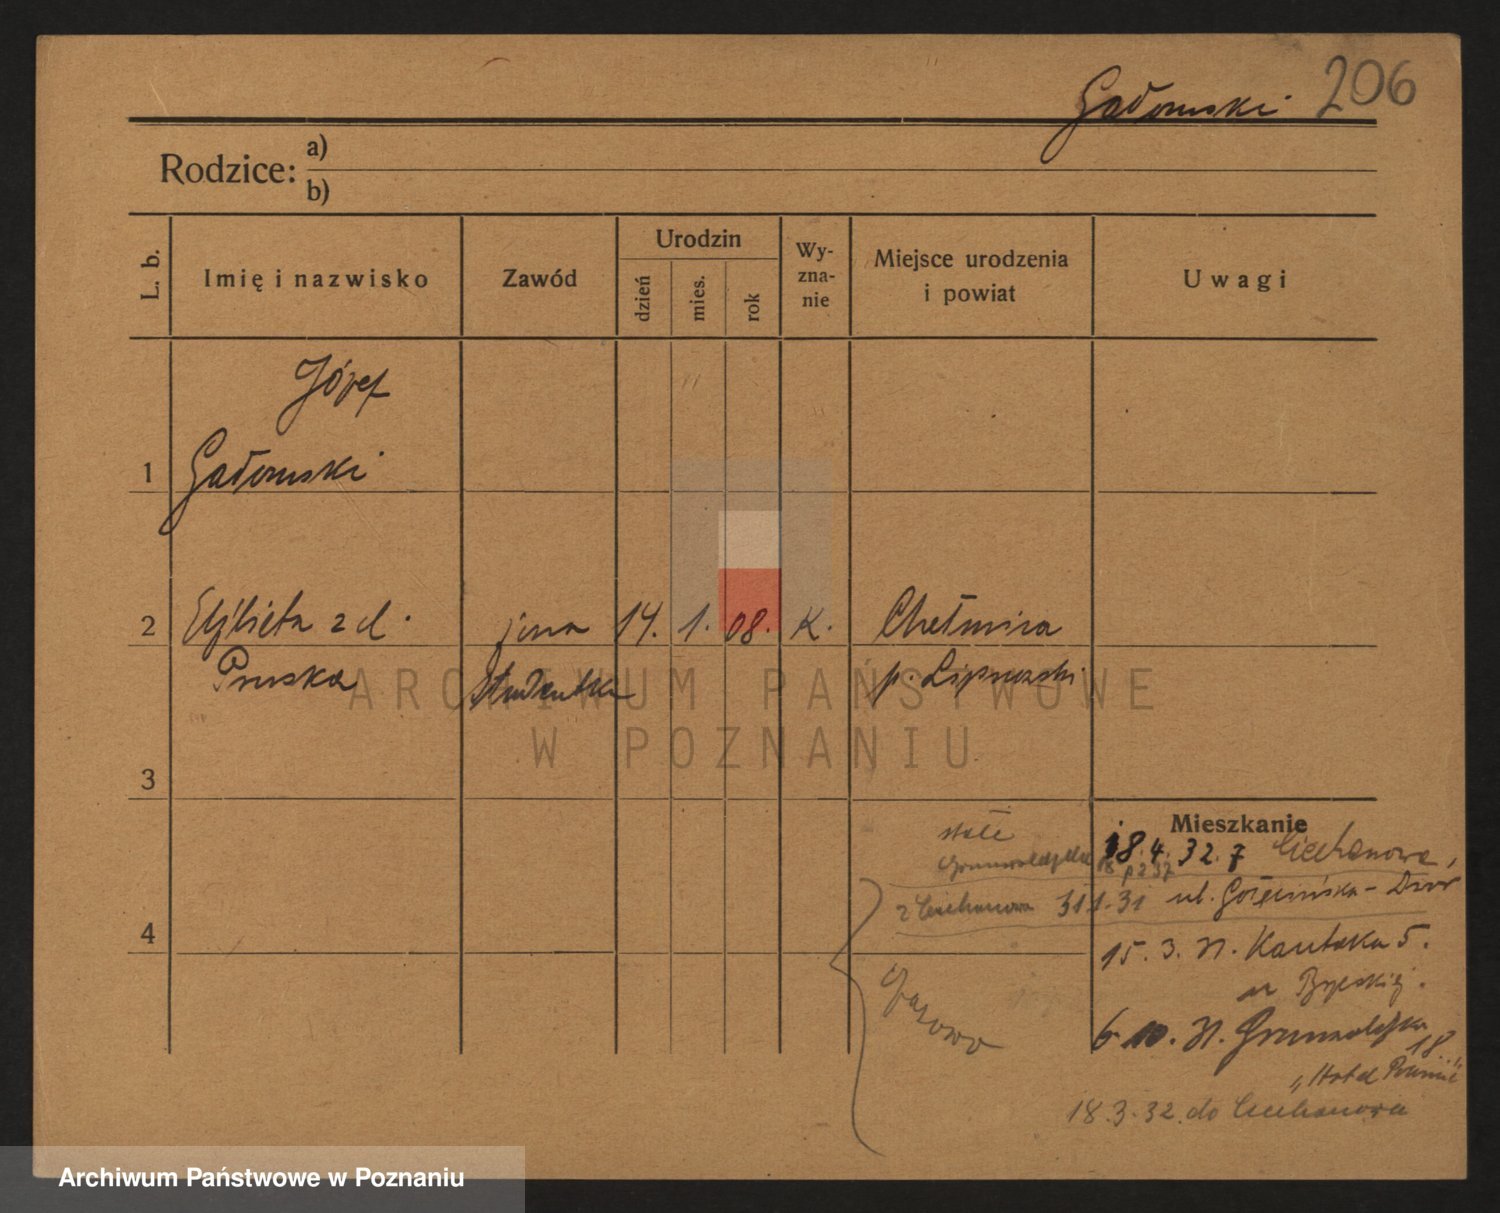 Gadomski 206
Rodzice: a)
b)
L. b. Imię i nazwisko Zawód Urodzin dzień mies. rok Wy-zna-nie Miejsce urodzenia i powiat Uwagi
Józef
1 Gadomski
2 Elżbieta z d. żona 14. 1. 08. K. Chełmica
Pruska Studentka p. Lipnowski
ARCHIWUM PAŃSTWOWE
W POZNANIU
3
Mieszkanie
stałe 18. 4. 32. z Ciechanowa,
Grunwaldzka 18
z Ciechanowa 31.1.31 ul. Gołęcińska - Dwór
4
15. 3. 31. Kantaka 5.
6. 10. 31. Grunwaldzka
18
czasowo
"Hotel
18.3.32. do Ciechanowa
Archiwum Państwowe w Poznaniu